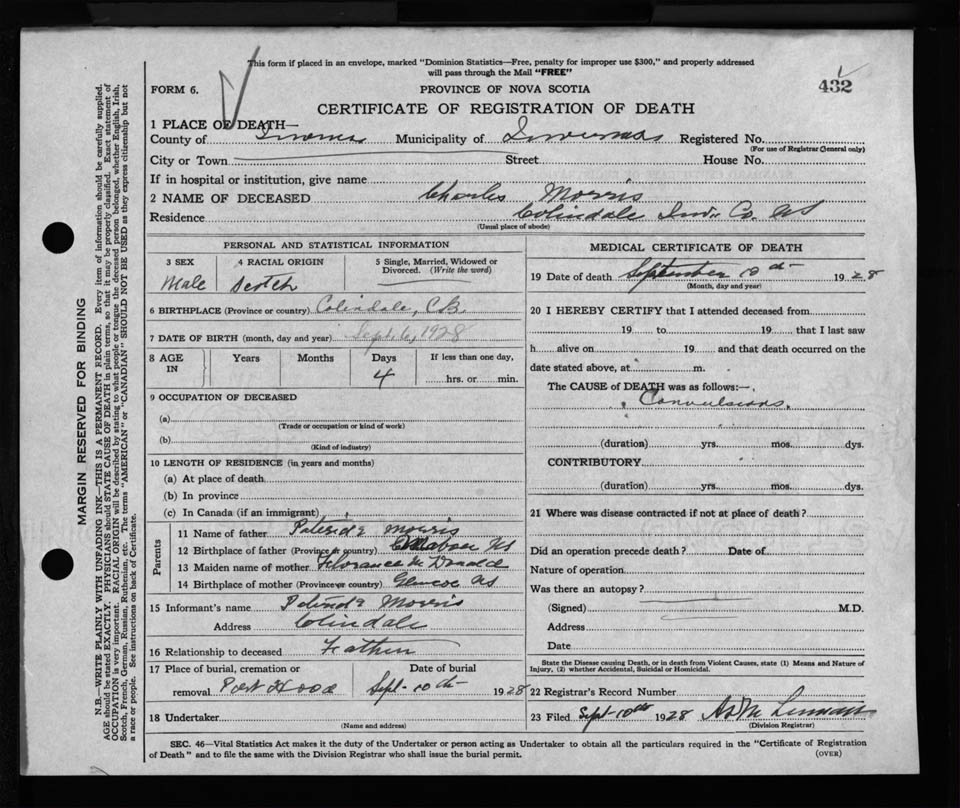 This form if placed in an envelope, marked "Dominion Statistics—Free, penalty for improper use $300," and properly addressed
will pass through the Mail "FREE"
FORM 6.
PROVINCE OF NOVA SCOTIA
432
CERTIFICATE OF REGISTRATION OF DEATH
1 PLACE OF DEATH—
County of Inverness Municipality of Inverness Registered No.
(For use of Registrar General only)
City or Town Street House No.
If in hospital or institution, give name
2 NAME OF DECEASED Charles Morris
Residence Colindale Inv. Co. NS
(Usual place of abode)
PERSONAL AND STATISTICAL INFORMATION
3 SEX 4 RACIAL ORIGIN 5 Single, Married, Widowed or Divorced. (Write the word)
Male Scotch
6 BIRTHPLACE (Province or country) Colindale, C.B.
7 DATE OF BIRTH (month, day and year) Sept. 6, 1928
8 AGE IN Years Months Days If less than one day,
4 hrs. or min.
9 OCCUPATION OF DECEASED
(a)
(Trade or occupation or kind of work)
(b)
(Kind of industry)
10 LENGTH OF RESIDENCE (in years and months)
(a) At place of death
(b) In province
(c) In Canada (if an immigrant)
Parents
11 Name of father Morris
12 Birthplace of father (Province or country) NS
13 Maiden name of mother Florance McDonald
14 Birthplace of mother (Province or country) Glencoe NS
15 Informant's name Morris
Address Colindale
16 Relationship to deceased Father
17 Place of burial, cremation or Date of burial
removal Port Hood Sept. 10th 1928
18 Undertaker
(Name and address)
MEDICAL CERTIFICATE OF DEATH
19 Date of death September 10th 1928
(Month, day and year)
20 I HEREBY CERTIFY that I attended deceased from
19 to 19 that I last saw
h alive on 19 and that death occurred on the
date stated above, at m.
The CAUSE of DEATH was as follows:—
Convulsions.
(duration) yrs. mos. dys.
CONTRIBUTORY
(duration) yrs. mos. dys.
21 Where was disease contracted if not at place of death?
Did an operation precede death? Date of
Nature of operation
Was there an autopsy?
(Signed) M.D.
Address
Date
State the Disease causing Death, or in death from Violent Causes, state (1) Means and Nature of
Injury, (2) whether Accidental, Suicidal or Homicidal.
22 Registrar's Record Number
23 Filed Sept 10th 1928
(Division Registrar)
SEC. 46—Vital Statistics Act makes it the duty of the Undertaker or person acting as Undertaker to obtain all the particulars required in the "Certificate of Registration
of Death" and to file the same with the Division Registrar who shall issue the burial permit.
(OVER)
MARGIN RESERVED FOR BINDING
N.B.—WRITE PLAINLY WITH UNFADING INK—THIS IS A PERMANENT RECORD. Every item of information should be carefully supplied.
AGE should be stated EXACTLY. PHYSICIANS should STATE CAUSE OF DEATH in plain terms, so that it may be properly classified. Exact statement of
OCCUPATION is very important. RACIAL ORIGIN will be described by stating to what people or tongue the deceased person belonged, whether English, Irish,
Scotch, French, German, Russian, Ruthenian, etc. The terms "AMERICAN" or "CANADIAN" SHOULD NOT BE USED as they express citizenship but not
a race or people. See instructions on back of Certificate.